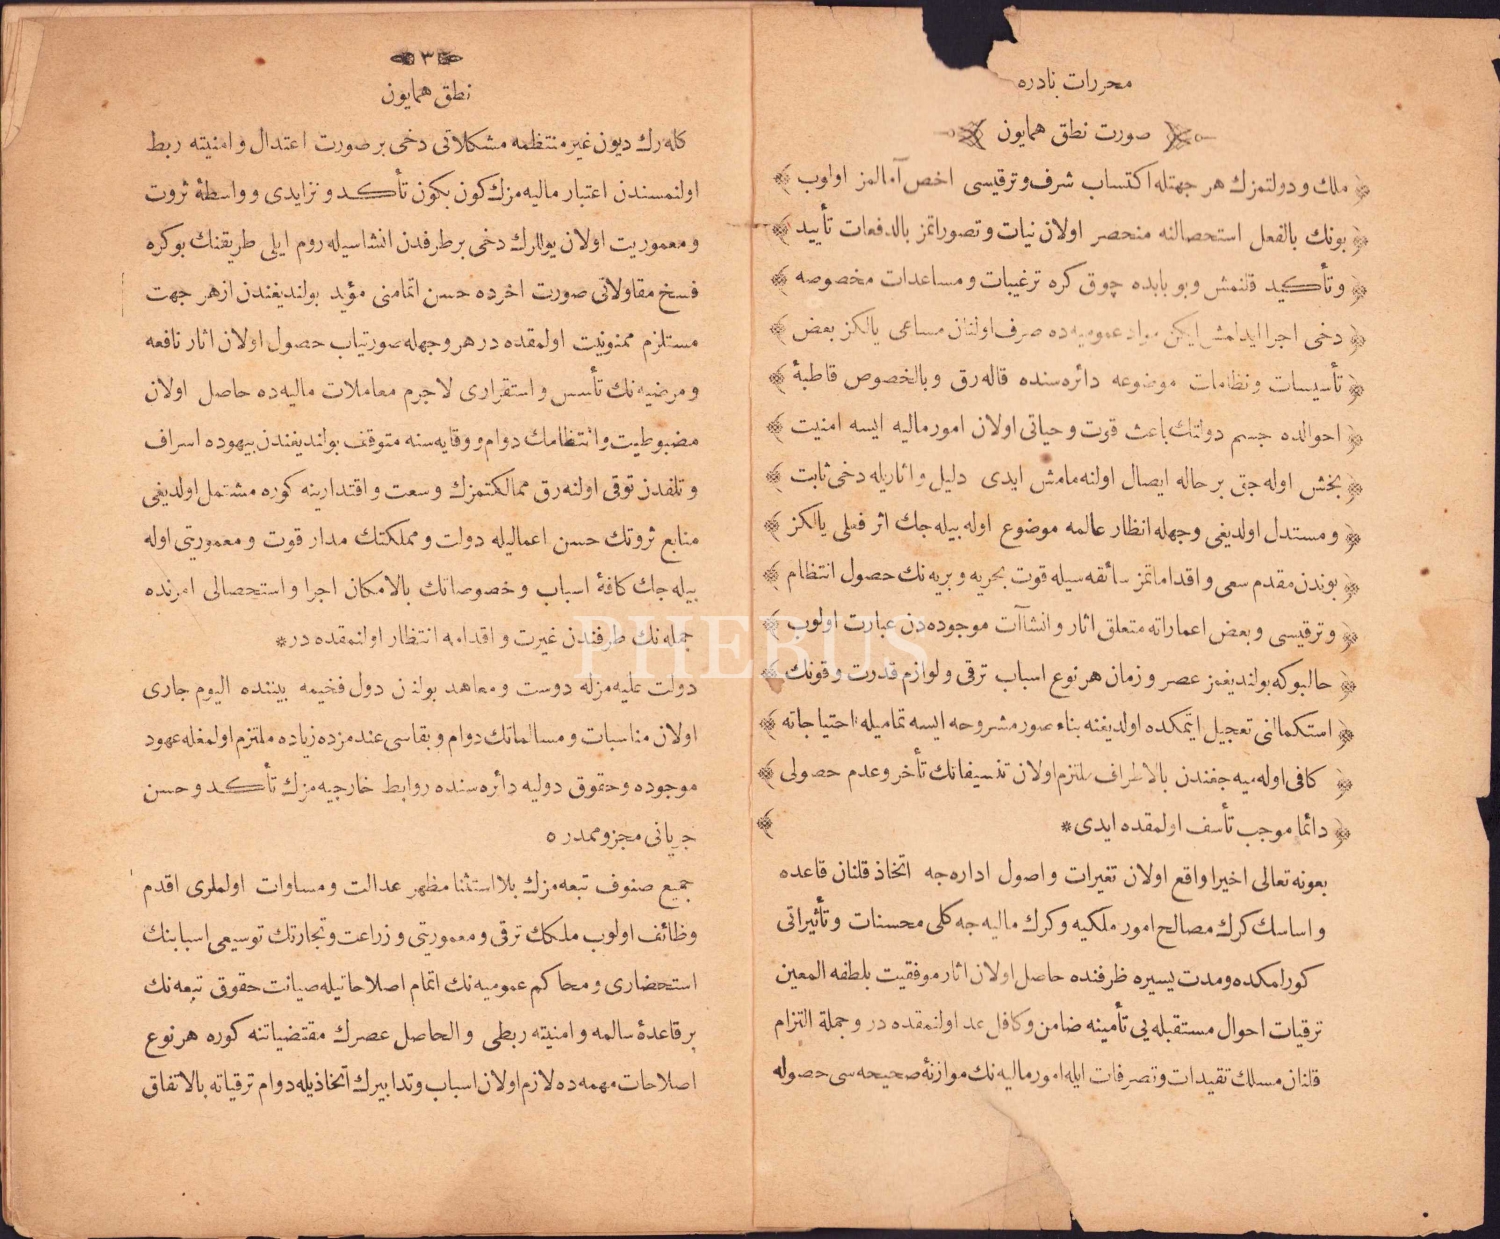 محررات نادره
صورت نطق همايون
ملك و دولتمزك هر جهتله اكتساب شرف و ترقيسى اخص آمالمز اولوب
بونك بالفعل استحصالنه منحصر اولان نيات و تصوراتمز بالدفعات تأييد
و تأكيد قلنمش و بو بابده چوق كره ترغيبات و مساعدات مخصوصه
دخى اجرا ايدلمش ايكن مواد عموميه ده صرف اولنان مساعى يالكز بعض
تأسيسات و نظامات موضوعه دائره سنده قاله رق و بالخصوص قاطبۀ
احوالده جسم دولتك باعث قوت و حياتى اولان امور ماليه ايسه امنيت
بخش اوله جق بر حاله ايصال اولنه مامش ايدى دليل و اثاريله دخى ثابت
و مستدل اولديغى وجهله انظار عالمه موضوع اوله بيله جك اثر فعلى يالكز
بوندن مقدم سعى و اقداماتمز سائقه سيله قوت بحريه و بريه نك حصول انتظام
و ترقيسى و بعض اعماراته متعلق اثار و انشاآت موجوده دن عبارت اولوب
حالبوكه بولنديغمز عصر و زمان هر نوع اسباب ترقى و لوازم قدرت و قوتك
استكمالنى تعجيل ايتمكده اولديغنه بناء صور مشروحه ايسه تماميله احتياجاته
كافى اوله ميه جغندن بالاطراف ملتزم اولان تنسيقاتك تأخر و عدم حصولى
دائما موجب تأسف اولمقده ايدى*
بعونه تعالى اخيرا واقع اولان تغيرات و اصول اداره جه اتخاذ قلنان قاعده
و اساسك كرك مصالح امور ملكيه و كرك ماليه جه كلى محسنات و تأثيراتى
كورلمكده و مدت يسيره ظرفنده حاصل اولان اثار موفقيت بلطفه المعين
ترقيات احوال مستقبله يى تأمينه ضامن و كافل عد اولنمقده در و جملۀ التزام
قلنان مسلك تقيدات و تصرفات ايله امور ماليه نك موازنۀ صحيحه سى حصوله
٣
نطق همايون
كله رك ديون غير منتظمه مشكلاتى دخى بر صورت اعتدال و امنيته ربط
اولنمسندن اعتبار ماليه مزك كون بكون تأكد و تزايدى و واسطۀ ثروت
و معموريت اولان يوللرك دخى بر طرفدن انشاسيله روم ايلى طريقنك بو كره
فسخ مقاولاتى صورت اخرده حسن اتمامنى مؤيد بولنديغندن از هر جهت
مستلزم ممنونيت اولمقده در هر وجهله صورتياب حصول اولان اثار نافعه
و مرضيه نك تأسس و استقرارى لاجرم معاملات ماليه ده حاصل اولان
مضبوطيت و انتظامك دوام و وقايه سنه متوقف بولنديغندن بيهوده اسراف
و تلفدن توقى اولنه رق ممالكتمزك وسعت و اقتدارينه كوره مشتمل اولديغى
منابع ثروتك حسن اعماليله دولت و مملكتك مدار قوت و معموريتى اوله
بيله جك كافۀ اسباب و خصوصاتك بالامكان اجرا و استحصالى امرنده
جمله نك طرفندن غيرت و اقدامه انتظار اولنمقده در*
دولت عليه مزله دوست و معاهد بولنان دول فخيمه بيننده اليوم جارى
اولان مناسبات و مسالماتك دوام و بقاسى عندمزده زياده ملتزم اولمغله عهود
موجوده و حقوق دوليه دائره سنده روابط خارجيه مزك تأكد و حسن
جريانى مجزوممدر ٥
جميع صنوف تبعه مزك بلا استثنا مظهر عدالت و مساوات اولملرى اقدم
وظائف اولوب ملكك ترقى و معموريتى و زراعت و تجارتك توسيعى اسبابنك
استحضارى و محاكم عموميه نك اتمام اصلاحاتيله صيانت حقوق تبعه نك
بر قاعدۀ سالمه و امنيته ربطى و الحاصل عصرك مقتضياتنه كوره هر نوع
اصلاحات مهمه ده لازم اولان اسباب و تدابيرك اتخاذيله دوام ترقياته بالاتفاق
PHEBUS